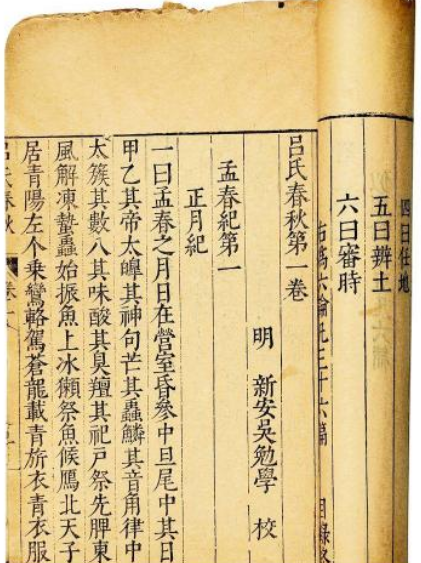 四曰任地
五曰辨土
六曰審時
右爲六論凡三十六篇
目錄
呂氏春秋第一卷
明 新安吳勉學 校
孟春紀第一
正月紀
一曰孟春之月日在營室昏參中旦尾中其日
甲乙其帝太皥其神句芒其蟲鱗其音角律中
太簇其數八其味酸其臭羶其祀戶祭先脾東
風解凍蟄蟲始振魚上冰獺祭魚候鴈北天子
居青陽左个乘鸞輅駕蒼龍載青旂衣青衣服
呂氏春秋 卷一